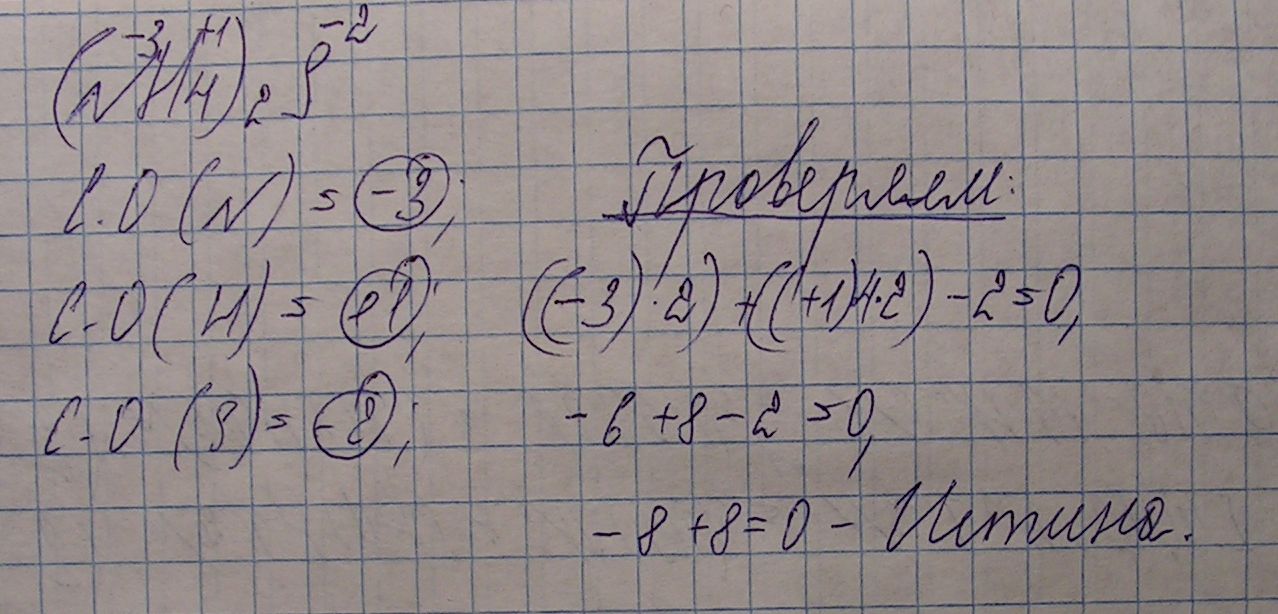 (N⁻³H⁺¹₄)₂S⁻²
С.О (N) = -3;
С-О (H) = +1;
С-О (S) = -2;
Проверяем:
((-3)·2)+((+1)4·2)-2=0,
-6+8-2=0,
-8+8=0 - Истина.